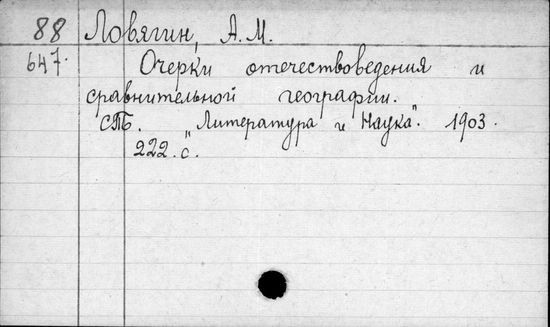 88 Ловягин, А.М.
647. Очерки отечествоведения и
сравнительной географии.
СПБ. "Литература и Наука". 1903.
222. с.